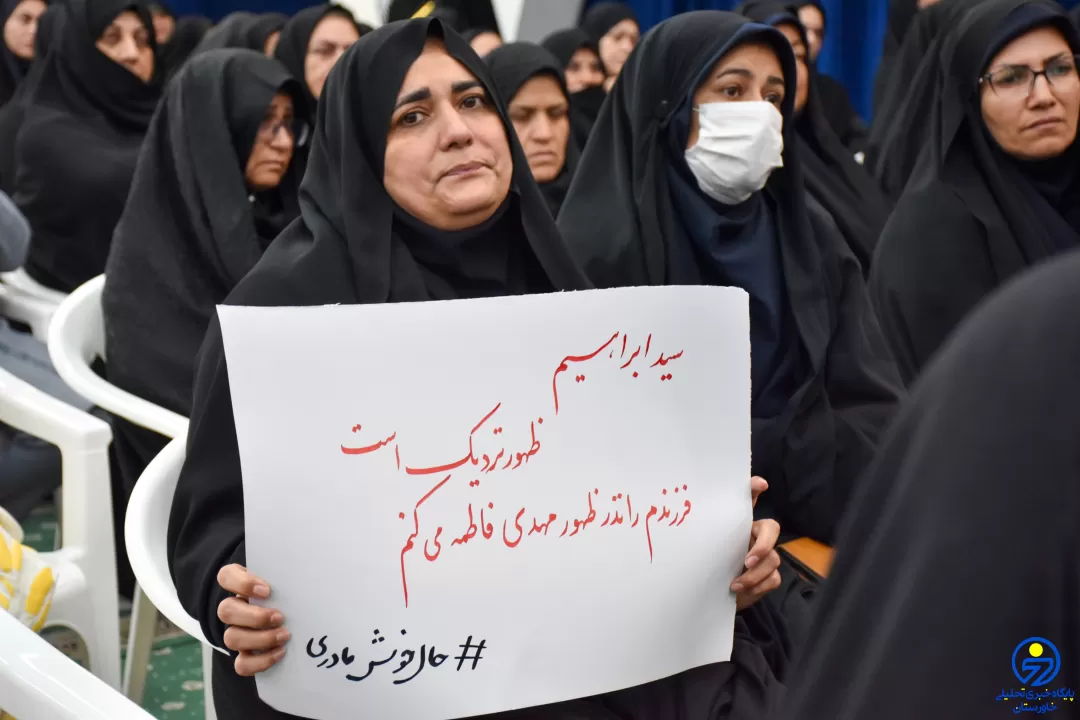 سید ابراهیم
ظهور نزدیک است
فرزندم را نذر ظهور مهدی فاطمه می کنم
#حال خوش مادری
پایگاه خبری تحلیلی
خاورستان